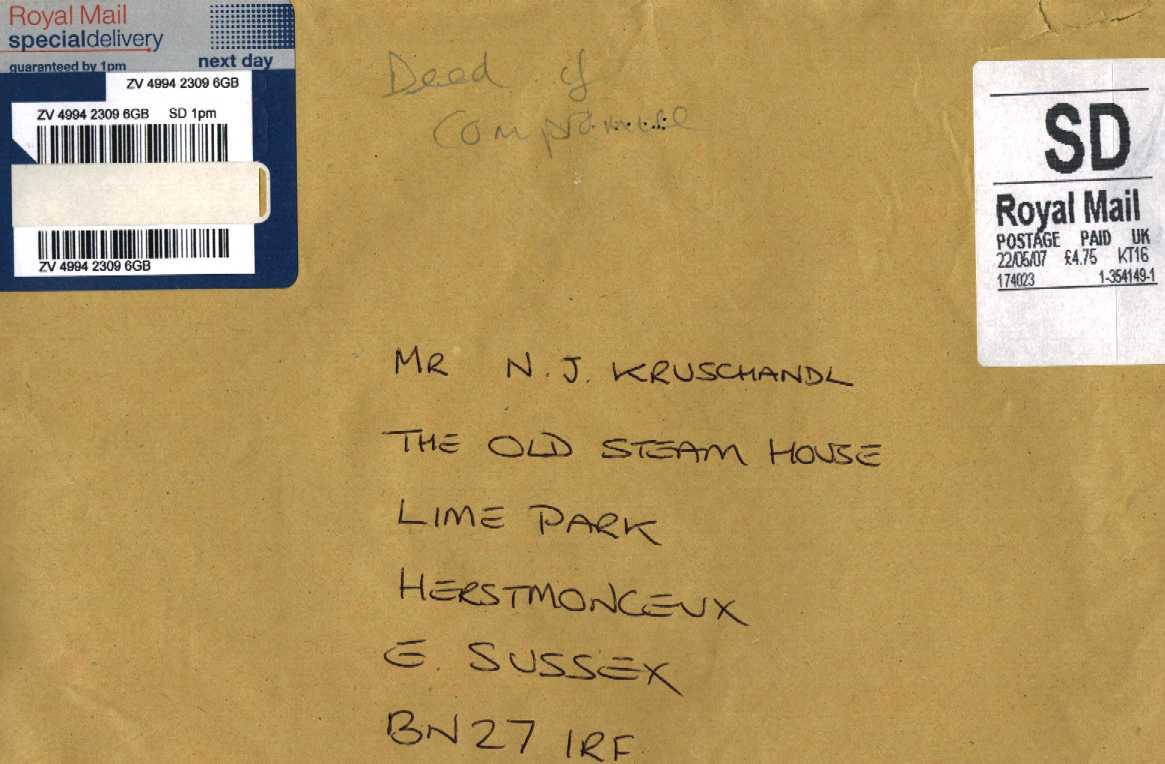 Royal Mail
specialdelivery
guaranteed by 1pm
next day
ZV 4994 2309 6GB
ZV 4994 2309 6GB SD 1pm
ZV 4994 2309 6GB
Deed of
Compromise
SD
Royal Mail
POSTAGE PAID UK
22/05/07 £4.75 KT16
174023 1-354149-1
MR N. J. KRUSCHANDL
THE OLD STEAM HOUSE
LIME PARK
HERSTMONCEUX
E. SUSSEX
BN27 1RF